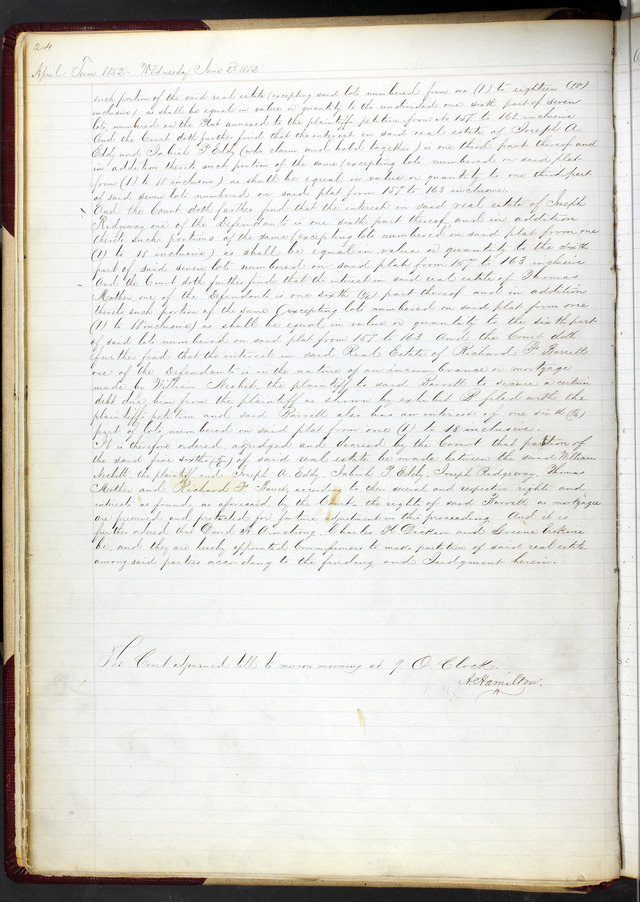 24
April Term 1852 - Wednesday June 2d 1852
such portion of the said real estate (excepting said lots numbered from one (1) to eighteen (18)
inclusive) as shall be equal in value or quantity to the undivided one sixth part of seven
lots, numbered on the Plat annexed to the plaintiffs petition from No 157 to 163 inclusive
And the Court doth further find that the interest in said real estate of Joseph A.
Eddy and Jabish P Eddy (who claim and hold together) is one third part thereof and
in addition thereto such portion of the same (excepting lots numbered on said plat
from (1) to 18 inclusive) as shall be equal in value or quantity to one third part
of said seven lots numbered on said plat from 157 to 163 inclusive.
And the Court doth further find that the interest in said real estate of Joseph
Ridgway one of the Defendants is one sixth part thereof and in addition
thereto such portions of the same (excepting lots numbered on said plat from one
(1) to 18 inclusive) as shall be equal in value or quantity to the sixth
part of said seven lots numbered on said plat from 157 to 163 inclusive
And the Court doth further find that the interest in said real estate of Thomas
Mather one of the Defendants is one sixth (1/6) part thereof and in addition
thereto such portion of the same (excepting lots numbered on said plat from one
(1) to 18 inclusive) as shall be equal in value or quantity to the sixth part
of said lots numbered on said plat from 157 to 163 And the Court doth
further find that the interest in said Real Estate of Richard F. Barrett
one of the Defendants is in the nature of an incumbrance or mortgage
made by William Nesbitt the plaintiff to said Barrett to secure a certain
debt due him from the plaintiff as shown by exhibit P filed with the
plaintiffs petition and said Barrett also has an interest of one sixth (1/6)
part of lots numbered on said plat from one (1) to 18 inclusive.
It is therefore ordered, adjudged and decreed by the Court that partition of
the said five sixths (5/6) of said real estate be made between the said William
Nesbitt, the plaintiff and Joseph A. Eddy Jabish P Eddy, Joseph Ridgeway, Thomas
Mather and Richard F Barrett, according to the several and respective rights and
interests as found, as aforesaid by the Court - the right of said Barrett as mortgagee
are reserved and protected for future adjustment in this proceeding And it is
further ordered that David H Armstrong Charles H Dickson and Greene Erskine
be, and they are hereby appointed Commissioners to make partition of said real estate
among said parties according to the finding and Judgment herein.
The Court adjourned till to morrow morning at 9. O. Clock.
A Hamilton.